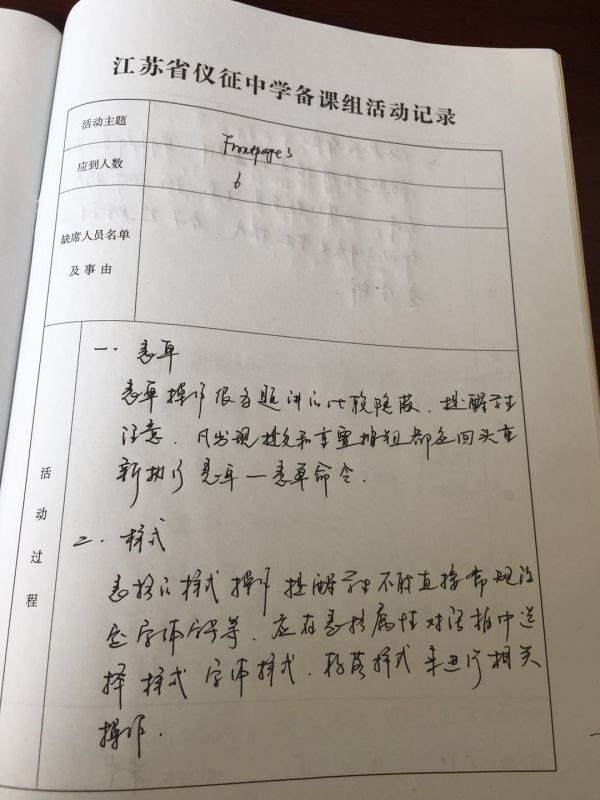 江苏省仪征中学备课组活动记录
活动主题
Frontpage 3
应到人数
6
缺席人员名单
及事由
活动过程
一. 表单
表单操作很多题讲的比较隐蔽. 提醒学生
注意. 凡发现提交和重置按钮都应回头重
新执行 表单—表单命令.
二. 样式
表格的样式操作 提醒学生不能直接常规设
定字体字号等. 应在表格属性对话框中选
择 样式 字体样式. 段落样式来进行相关
操作.